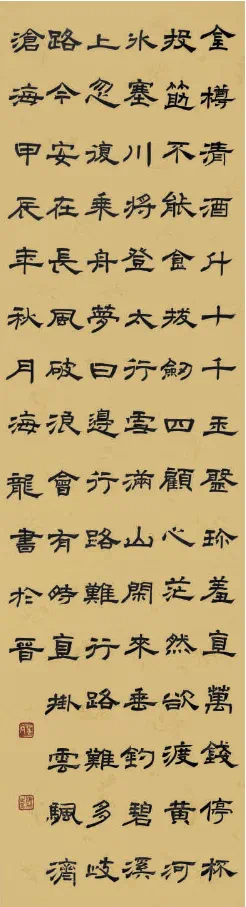 金樽清酒斗十千玉盤珍羞直萬錢停杯
投筯不能食拔劒四顧心茫然欲渡黃河
冰塞川將登太行雪滿山閑來垂釣碧溪
上忽復乘舟夢日邊行路難行路難多岐
路今安在長風破浪會有時直掛雲颿濟
滄海甲辰年秋月海龍書於晉